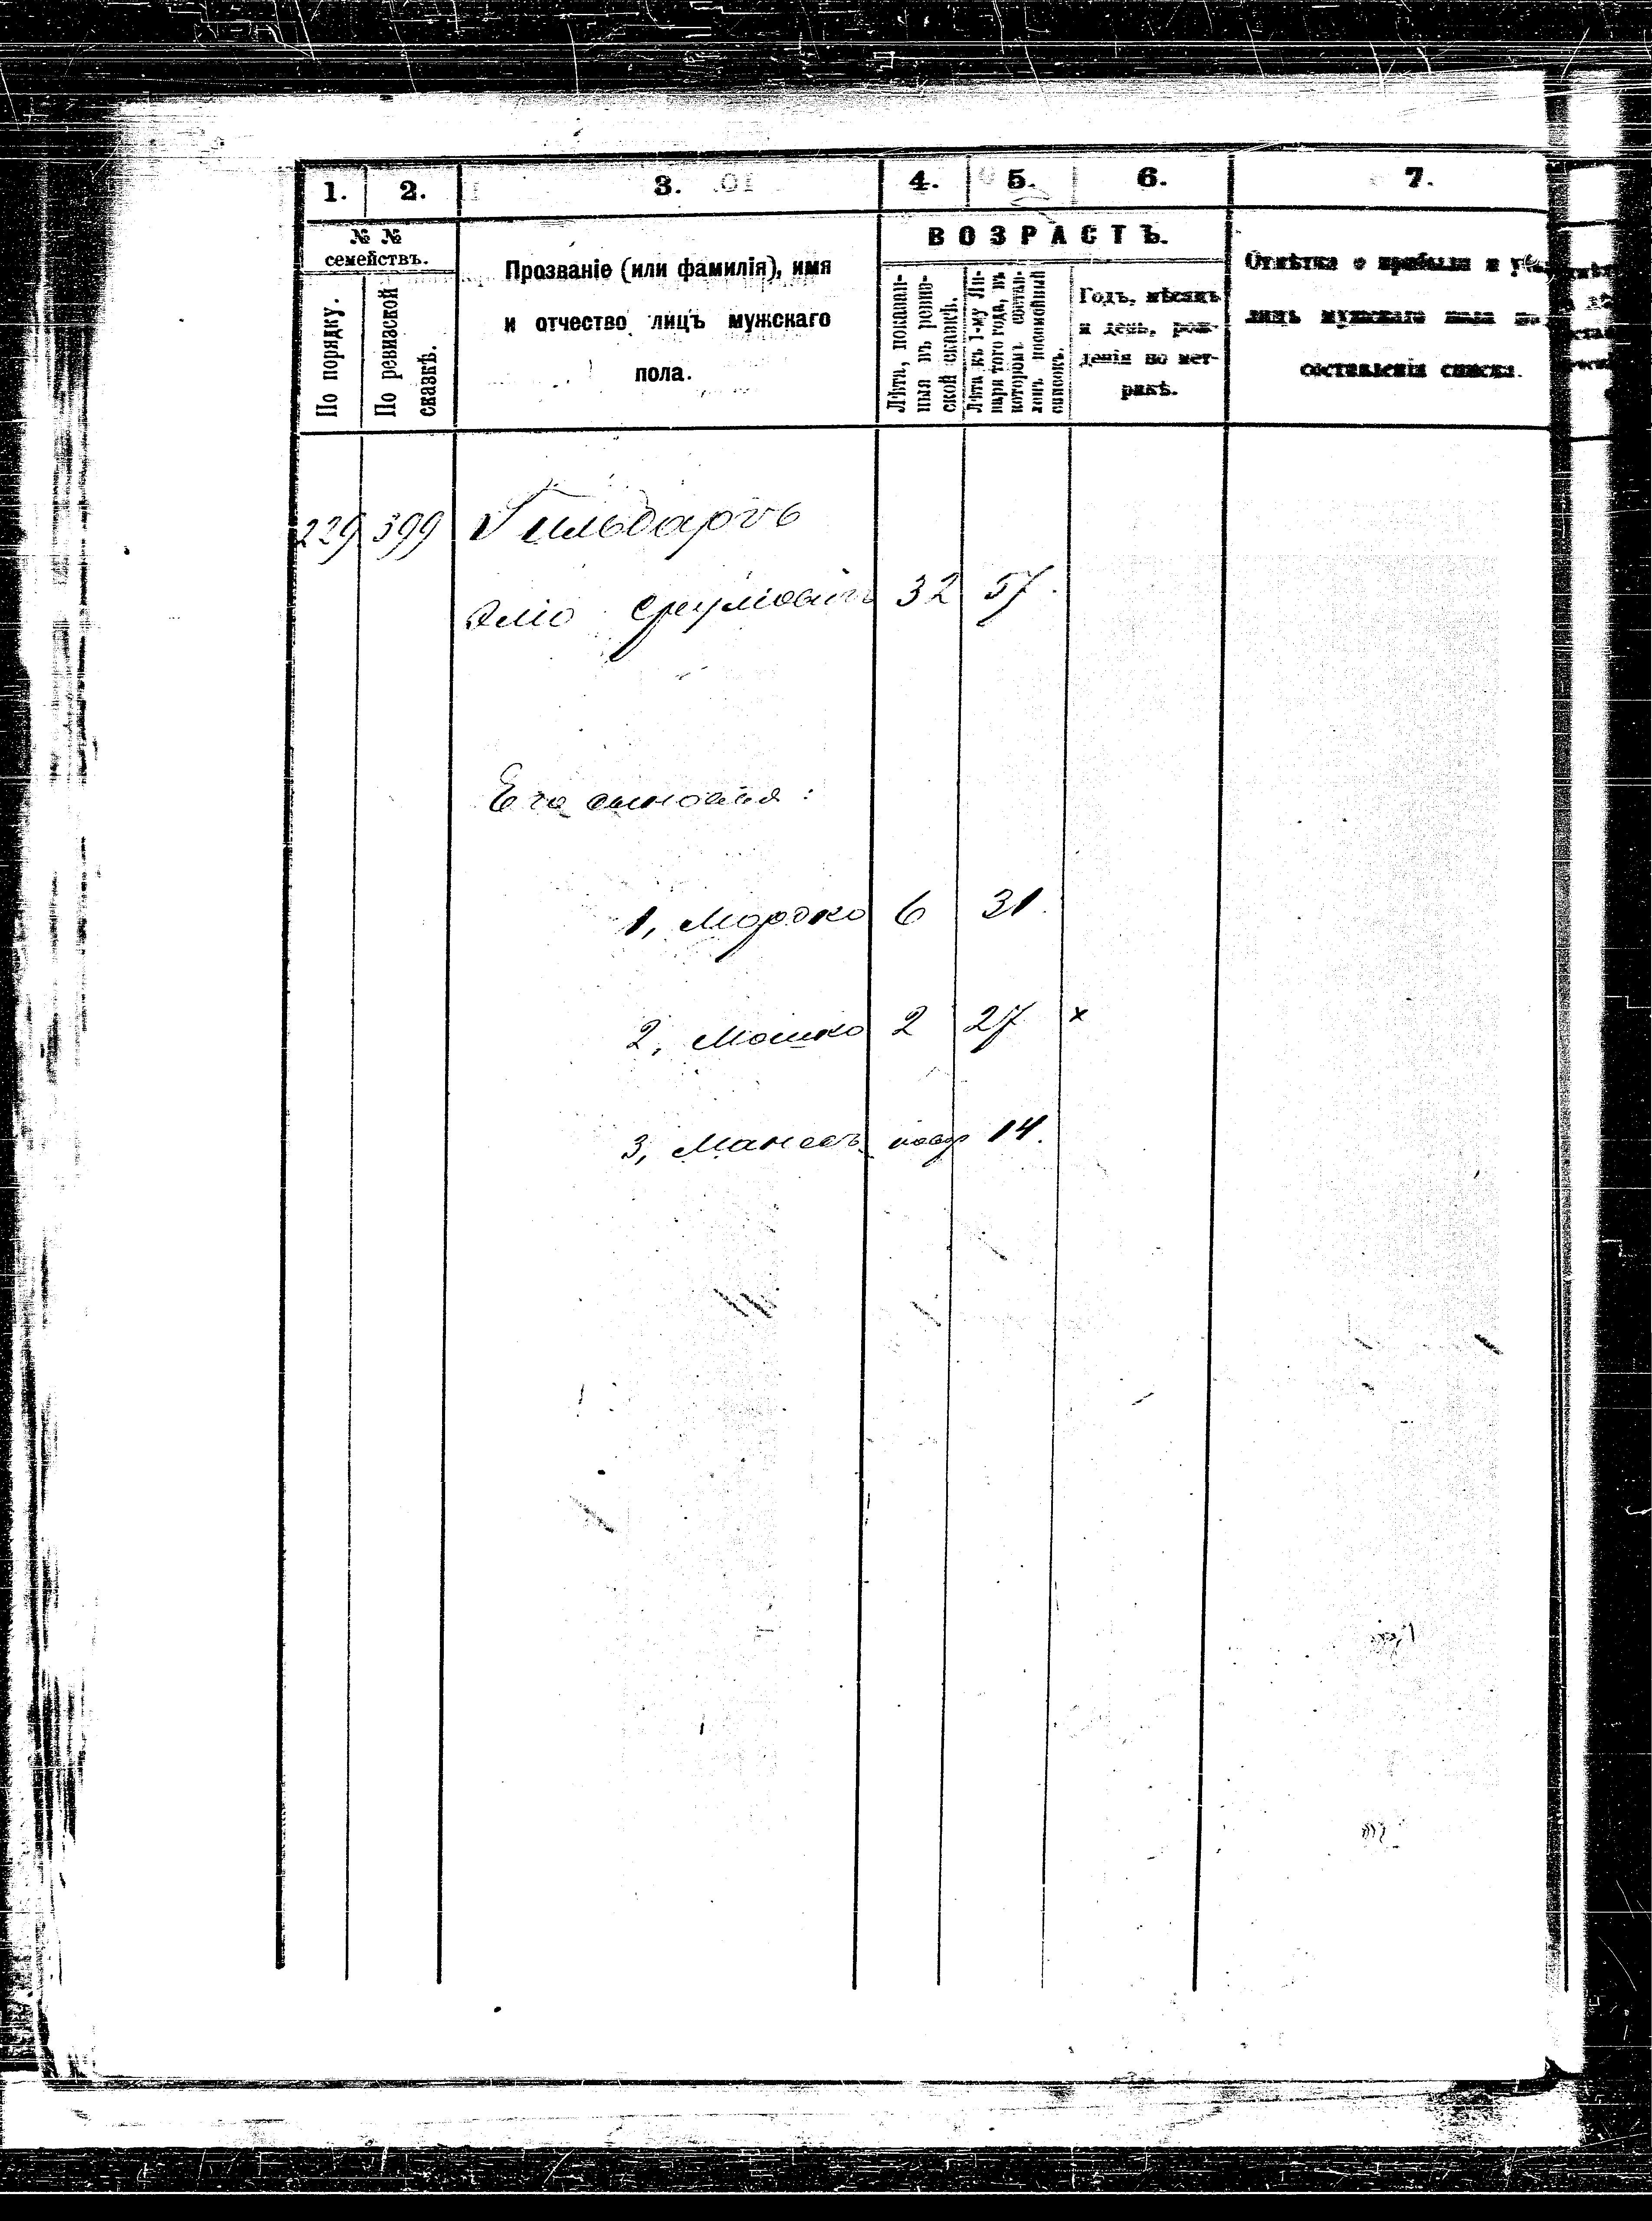 1. 2. 3. 4. 5. 6. 7.
№ № семействъ.
По порядку.
По ревизской сказкѣ.
Прозваніе (или фамилія), имя
и отчество лицъ мужскаго
пола.
ВОЗРАСТЪ.
Лѣта, показан-
ныя въ ревиз-
ской сказкѣ.
Лѣта къ 1-му Ян-
варя того года, въ
которомъ состав-
ленъ посемейный
списокъ.
Годъ, мѣсяцъ
и день, рож-
денія по мет-
рикѣ.
Отмѣтка о прибыли и
лицъ мужскаго пола
составленія списка.
229 399 Гильдартъ
Эліо 32 57.
Его сыновья:
1, Мордко 6 31.
2, Мошко 2 27 x
3, Манесъ 14.